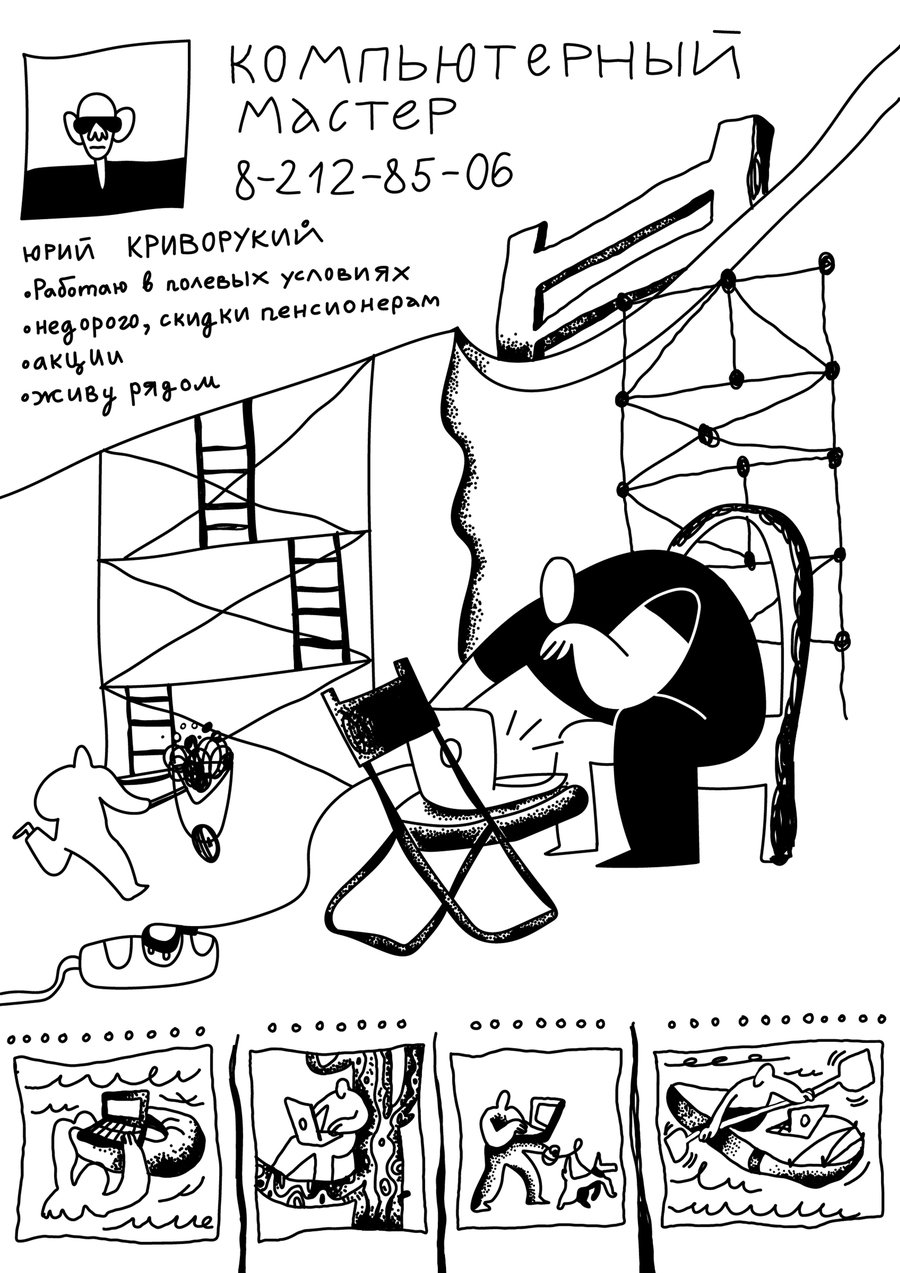 КОМПЬЮТЕРНЫЙ
МАСТЕР
8-212-85-06
ЮРИЙ КРИВОРУКИЙ
•Работаю в полевых условиях
•недорого, скидки пенсионерам
•акции
•живу рядом